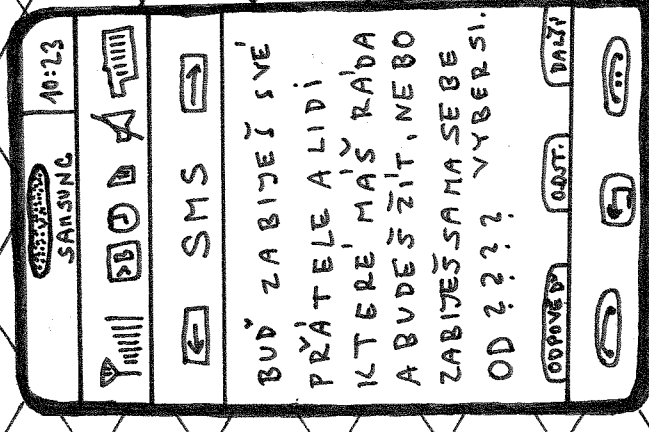 SAMSUNG 10:23
SMS
BUĎ ZABIJEŠ SVÉ
PŘÁTELE A LIDI
KTERÉ MÁŠ RÁDA
A BUDEŠ ŽÍT, NEBO
ZABIJEŠ SAMA SEBE
OD ???? VYBER SI.
ODPOVĚĎ ODST. DALŠÍ